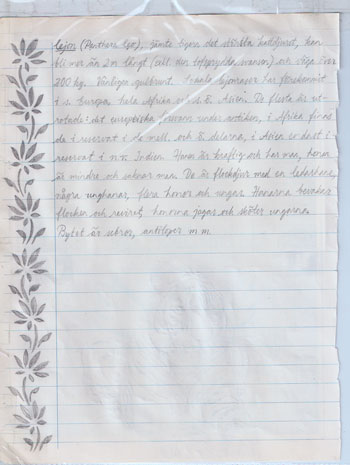 Lejon (Panthera leo), jämte tigern det största kattdjuret, kan
bli mer än 2 m långt (utom den tofsprydda svansen) och väga över
200 kg. Vanligen gulbrunt. Lejon har förekommit
i s. Europa, hela Afrika och s. Asien. De flesta är ut-
rotade: det europeiska försvann under antiken, i Afrika finns
de i reservat i de mell. och ö delarna, i Asien endast i
reservat i n.v. Indien. Hanen är kraftig och har man, honan
är mindre och saknar man. De är flockdjur med en ledarhane,
några unghanar, flera honor och ungar. Hanarna bevakar
flocken och reviret, honorna jagar och sköter ungarna.
Bytet är zebror, antiloper m.m.